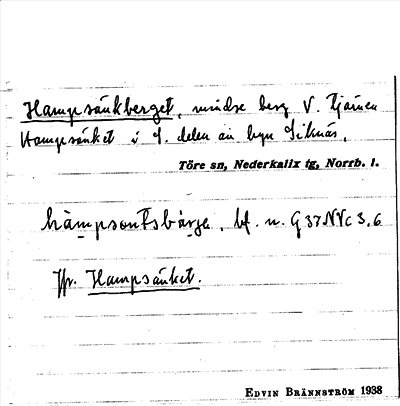 Hampsänkberget, mindre berg V. tjärnen
Hampsänket i S. delen av byn Siknäs.
Töre sn, Nederkalix tg, Norrb. l.
hämpsontsbärje, bf. n. G 37 NVc 3.6
Jfr. Hampsänket.
EDVIN BRÄNNSTRÖM 1938